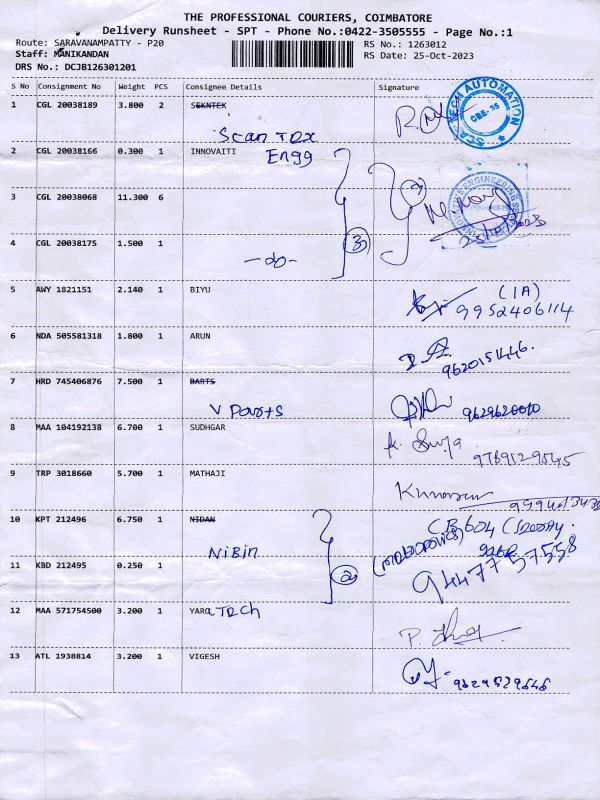 THE PROFESSIONAL COURIERS, COIMBATORE
Delivery Runsheet - SPT - Phone No.:0422-3505555 - Page No.:1
Route: SARAVANAMPATTY - P20 RS No.: 1263012
Staff: MANIKANDAN RS Date: 25-Oct-2023
DRS No.: DCJB126301201
S No Consignment No Weight PCS Consignee Details Signature
1 CGL 20038189 3.800 2 SEKNTEX
SCA TECH AUTOMATION
CBE-35
Scan Tex
2 CGL 20038166 0.300 1 INNOVAITI
Engg
3 CGL 20038068 11.300 6
3
4 CGL 20038175 1.500 1
-do-
5 AWY 1821151 2.140 1 BIYU (IA)
9952406114
6 NDA 505581318 1.800 1 ARUN
9620151446.
7 HRD 745406876 7.500 1 BARTS
V Parts 9629620010
8 MAA 104192138 6.700 1 SUDHGAR
K. Surya
9789129545
9 TRP 3018660 5.700 1 MATHAJI
Kumaran
10 KPT 212496 6.750 1 NIDAN
NiBin
11 KBD 212495 0.250 1
2
9447757558
12 MAA 571754500 3.200 1 YARA Tech
13 ATL 1938814 3.200 1 VIGESH
9629529646